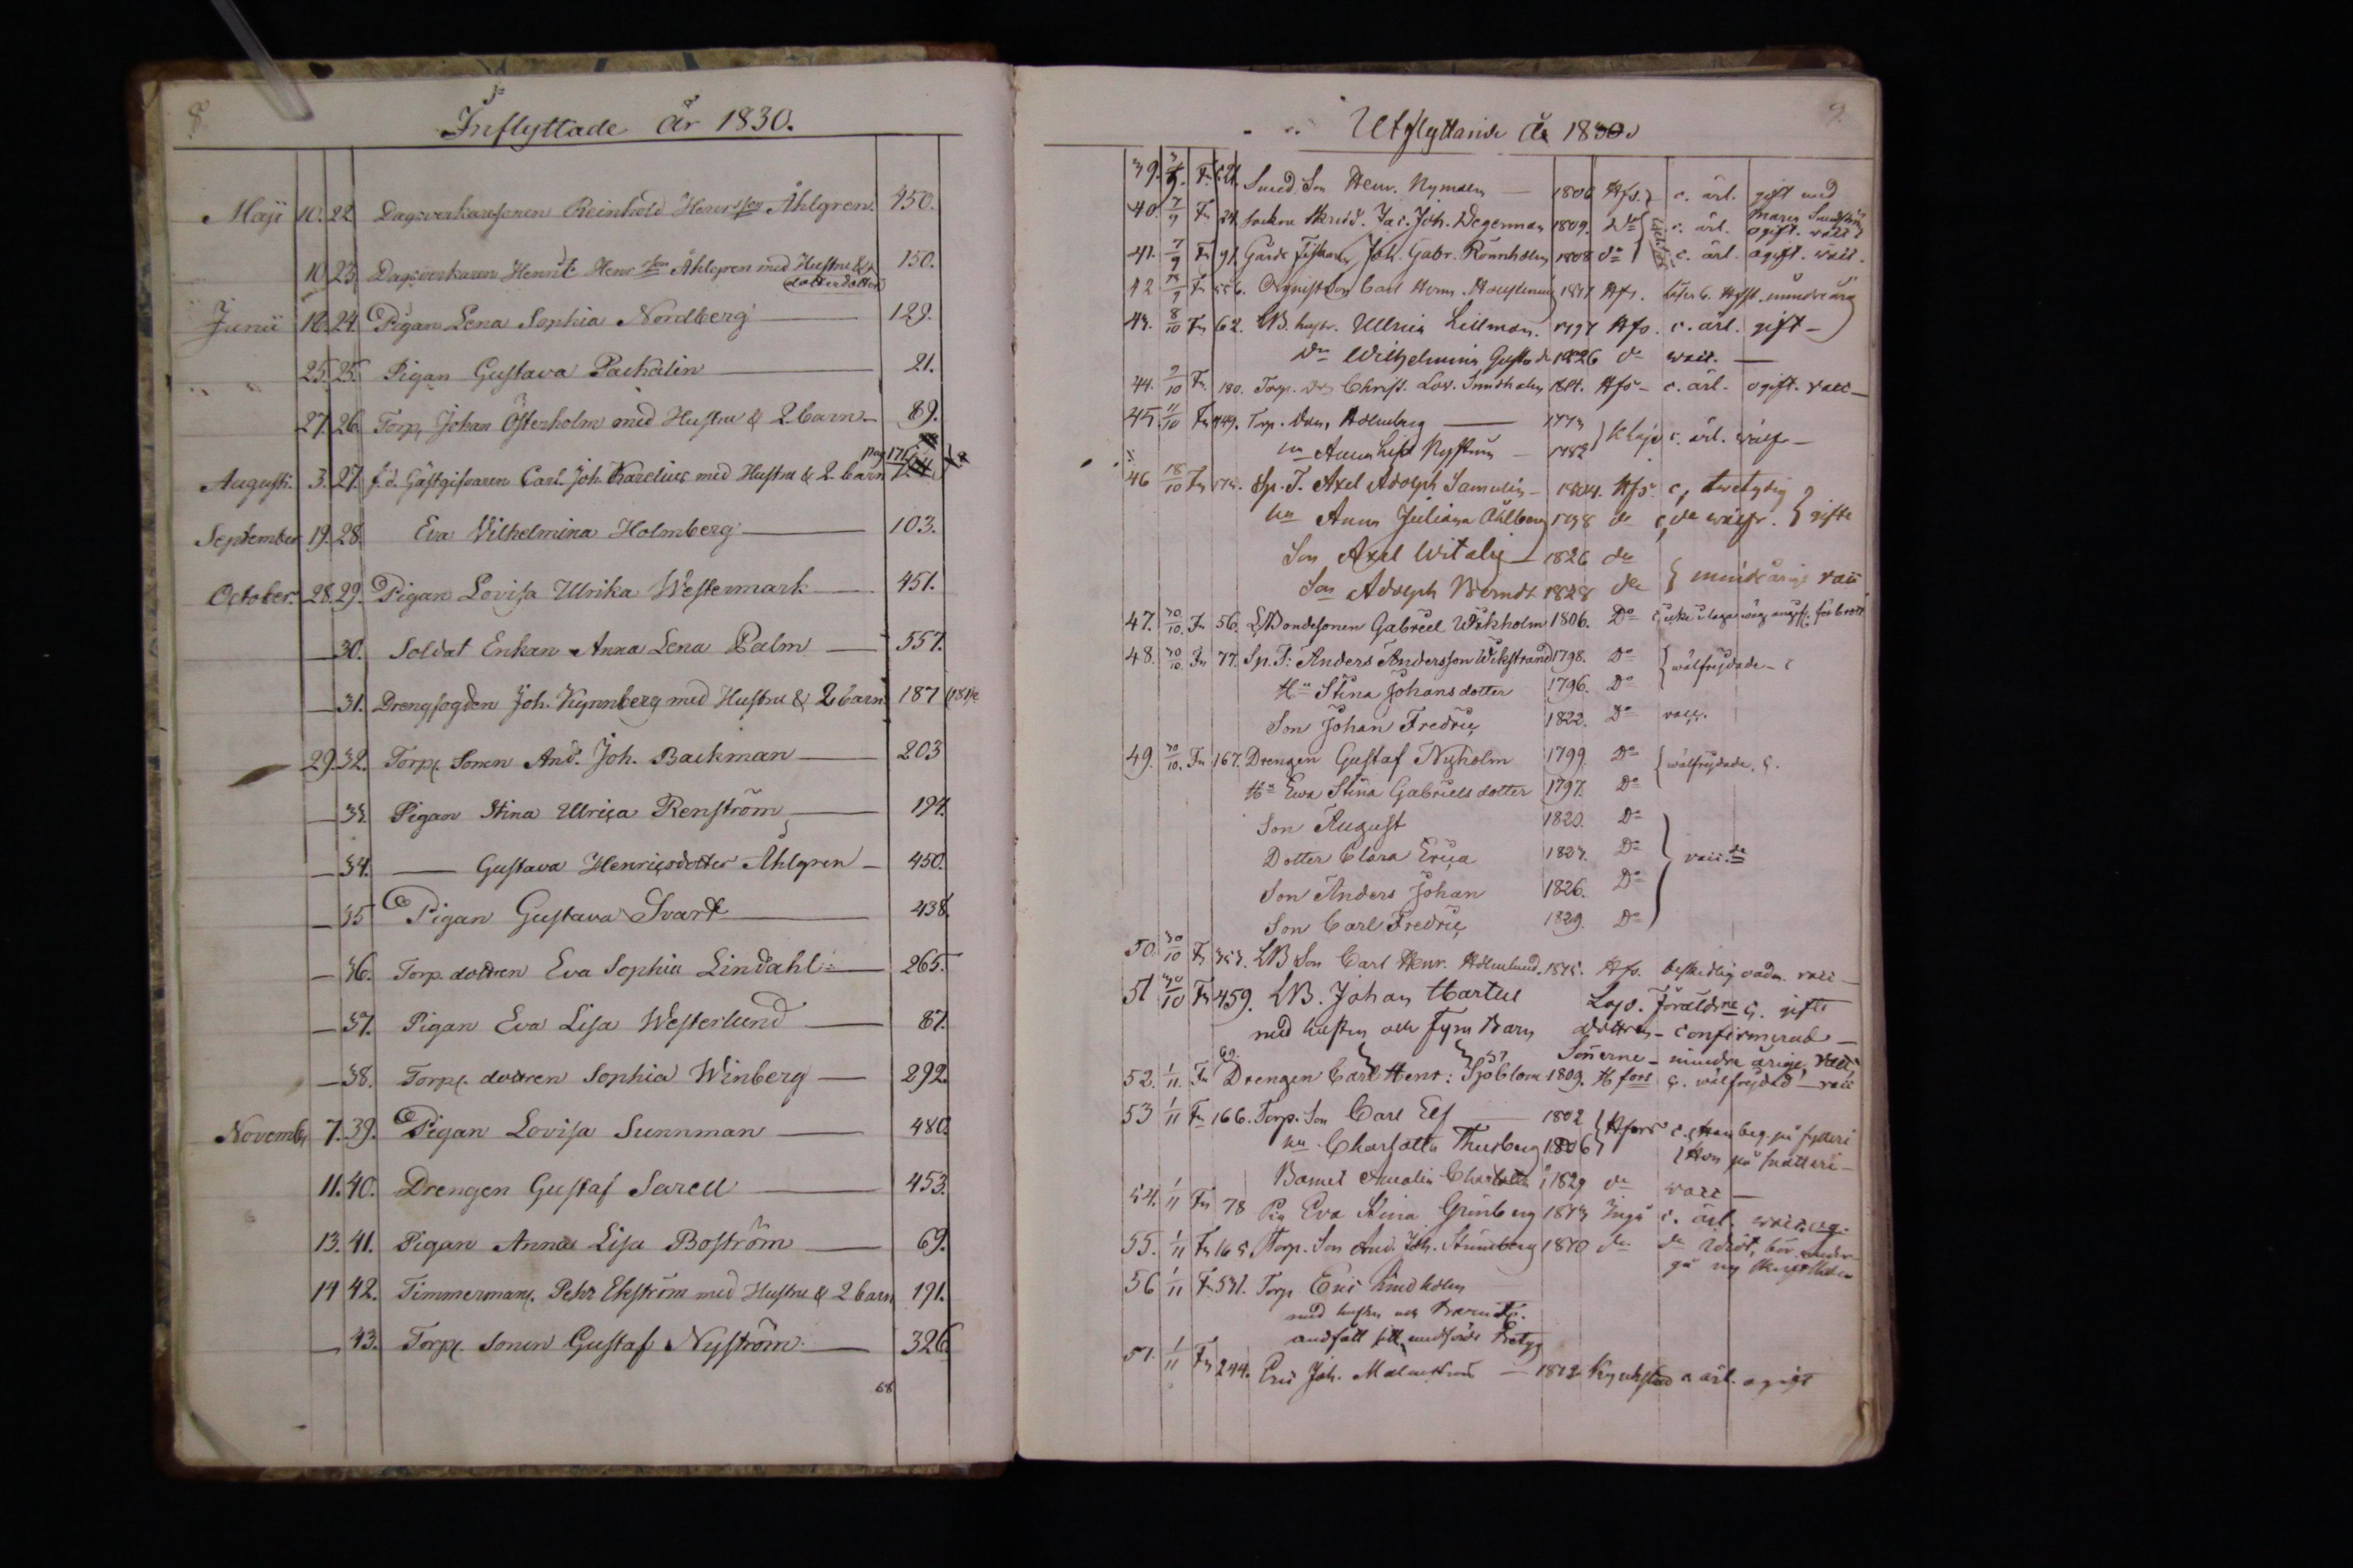 8.
Inflyttade År 1830.
Maji 10. 22 Dagsverkaresonen Reinhold Henrsson Åhlgren. 450.
10. 23. Dagsverkaren Henr. Henrsson Åhlgren med Hustru & dotterdotter 150.
Junii 16. 24. Pigan Lena Sophia Nordberg 129.
25. 25. Pigan Gustava Pachalin 21.
27. 26. Torp. Johan Österholm med Hustru & 2 barn 89.
Augusti. 3. 27. f.d. Gästgifvaren Carl Joh. Karelius med Hustru & 2 barn pag 171
September 19. 28. Eva Vilhelmina Holmberg 103.
October. 28. 29. Pigan Lovisa Ulrika Westermark 451.
30. Soldat Enkan Anna Lena Palm 557.
31. Drengfogden Joh. Kynnberg med Hustru & 2 barn 187
29. 32. Torp. Sonen And. Joh. Backman 203
33. Pigan Stina Ulrica Renström 194.
34. Gustava Henricsdotter Åhlgren 450.
35 Pigan Gustava Svart 438.
36. Torp. dottren Eva Sophia Lindahl 265.
37. Pigan Eva Lisa Westerlund 87.
38. Torp. dottren Sophia Winberg 292.
Novemb. 7. 39. Pigan Lovisa Sunnman 480.
11. 40. Drengen Gustaf Sarell 453.
13. 41. Pigan Anna Lisa Boström 69.
14 42. Timmerman. Pehr Ekström med Hustru & 2 barn 191.
43. Torp. Sonen Gustaf Nyström 326
68
9.
Utflyttande År 1830
39. Fr 521. Smed. Son Henr. Nyman 1806 Hfs. c. ärl. gift med
40. 7/9 Fr 24. Jac. Joh. Degerman 1809. Do c. ärl. ogift. vacc
41. 7/9 Fr 91. Joh. Gabr. Rönnholm 1808 do c. ärl. ogift. vacc.
42 Fr 556. Carl Herm. Hfs.
43. 8/10 Fr 62. LB. hustr. Ulrica Lillman. 1797 Hfs. c. ärl. gift
Dr Wilhelmina Gustava 1826 do vacc.
44. 9/10 Fr 180. Torp. Dr Christ. Lov. Sundholm 1814. Hfs c. ärl. ogift. vacc
45. 11/10 Fr 449. Torp. Holmberg 1773
hu Anna Lisa Nyström 1782 c. ärl. välfr
46 18/10 Fr 175. Sp. T. Axel Adolph Samulin 1804. Hfs. c. twetydig
hu Anna Juliana Åhlberg 1798 do c. do wälfr. gifte
Son Axel Witalis 1826 do
Son Adolph Berndt 1828 do minderårige vacc
47. 30/10. Fr 56. LBondesonen Gabriel Wikholm 1806. Do
48. 30/10. Fr 77. Sp. T: Anders Andersson Wikstrand 1798. Do wälfrejdade c
Hu Stina Johansdotter 1796. Do
Son Johan Fredric 1822. Do vacc.
49. 30/10. Fr 167. Drengen Gustaf Nyholm 1799. Do wälfrejdade. c.
Hu Eva Stina Gabrielsdotter 1797. Do
Son August 1820. Do
Dotter Clara Erica 1823. Do vacc.de
Son Anders Johan 1826. Do
Son Carl Fredric 1829. Do
50. 30/10 Fr 353. LB Son Carl Henr. Holmlund. 1815. Hfs. beskedlig vacc
51 30/10 Fr 459. LB. Johan Hartus Lojo. Föräldrne c. gifte
med hustru och fyra Barn dottren confirmerad
Sönerne mindreårige vacc
52. 1/11. Fr 69. Drengen Carl Henr: Sjöblom 1809. Hfors c. wälfrejdad vacc
53 1/11 Fr 166. Torp. Son Carl Elf 1802 Hfors c. Han beg. på fylleri
hu Charlotta Thusberg 1806 Hon på snatteri
Barnet Amalia Charlotta 1829 do vacc
54. 1/11 Fr 78 Pig Eva Stina Grönberg 1813 Ingå c. ärl. vacc. og.
55. 1/11 Fr 165 Torp. Son And. Joh. Strömberg 1810 do do
56 1/11 Fr 531. Torp Eric Lindholm
med hustru och barn
57. 1/11 Fr 244. Eric Joh. Malmström 1812 Kyrkslätt c ärl. ogift